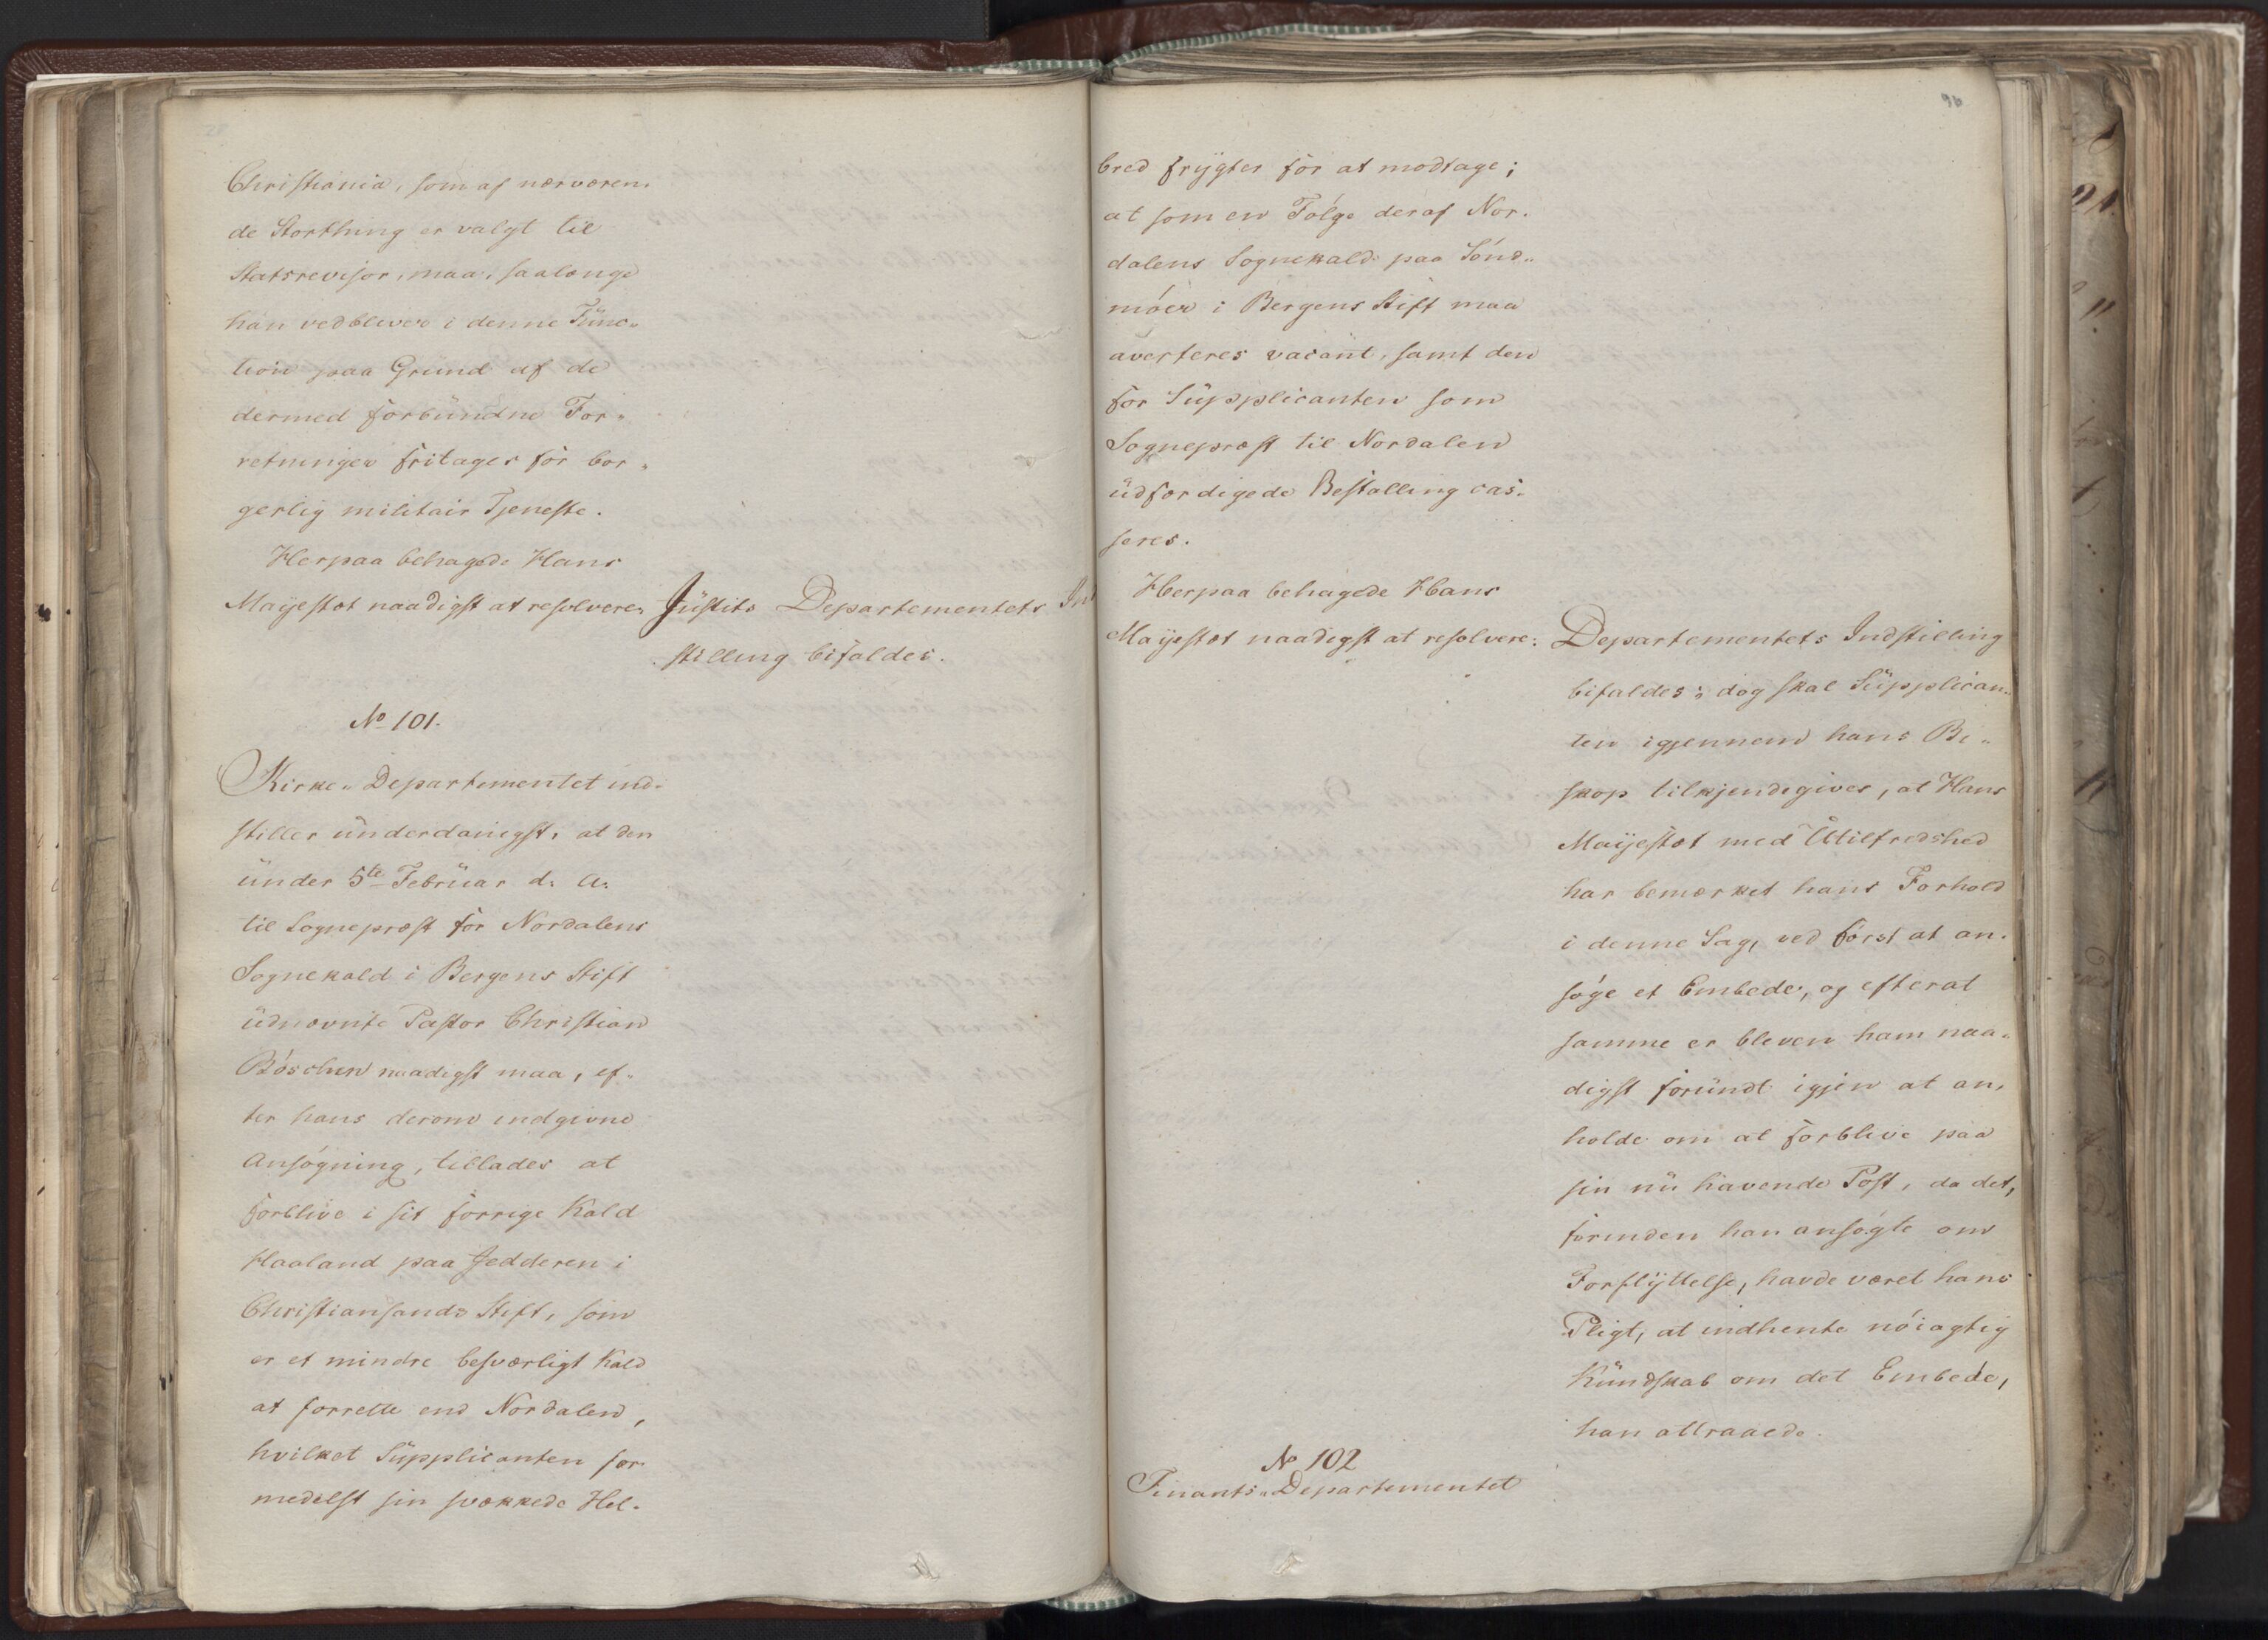 Christiania, som af nærværen-
de Storthing er valgt til
Statsrevisor, maa, saalænge
han vedbliver i denne Func-
tion paa Grund af de
dermed forbundne For-
retninger fritages for bor-
gerlig militair Tjeneste.
Herpaa behagede Hans
Mayestæt naadigst at resolvere:
Justits Departementets Ind
stilling bifaldes.
No 101.
Kirke-Departementet ind-
stiller underdanigst, at den
under 5te Februar d. A.
til Sognepræst for Nordalens
Sognekald i Bergens Stift
udnævnte Pastor Christian
Böschen naadigst maa, ef-
ter hans derom indgivne
Ansøgning, tillades at
forblive i sit forrige Kald
Haaland paa Jedderen i
Christiansands Stift, som
er et mindre besværligt Kald
at forrette end Nordalen,
hvilket Supplicanten for-
medelst sin svækkede Hel-
96
bred frygter for at modtage;
at som en Følge deraf Nor-
dalens Sognekald paa Sønd-
møer i Bergens Stift maa
averteres vacant, samt den
for Supplicanten som
Sognepræst til Nordalen
udfærdigede Bestalling cas-
seres.
Herpaa behagede Hans
Mayestæt naadigst at resolvere:
Departementets Indstilling
bifaldes; dog skal Supplican-
ten igjennem hans Bi-
skop tilkjendegives, at Hans
Mayestæt med Utilfredshed
har bemærket hans Forhold
i denne Sag, ved først at an-
søge et Embede, og efterat
samme er bleven ham naa-
digst forundt igjen at an-
holde om at forblive paa
sin nu havende Post, da det,
forinden han ansøgte om
Forflyttelse, havde været hans
Pligt, at indhente nøiagtig
Kundskab om det Embede,
han attraaede.
No 102
Finants-Departementet